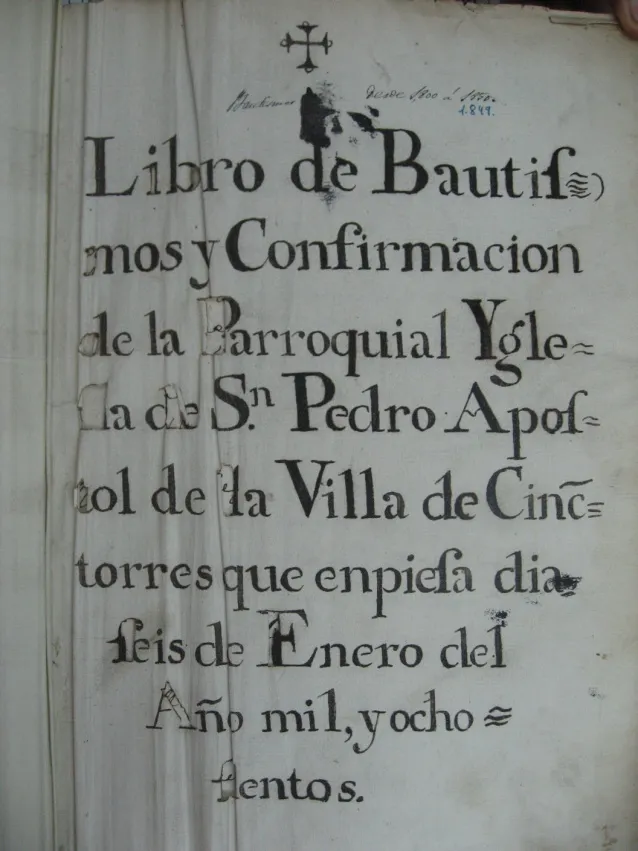 Bautismos desde 1800 á 1850.
1.849.
Libro de Bautiſ≈
mos y Confirmacion
de la Parroquial Ygle≈
ſia de S.n Pedro Apoſ=
tol de la Villa de Cinc̃=
torres que enpieſa dia
ſeis de Enero del
Año mil, y ocho ≈
ſientos.